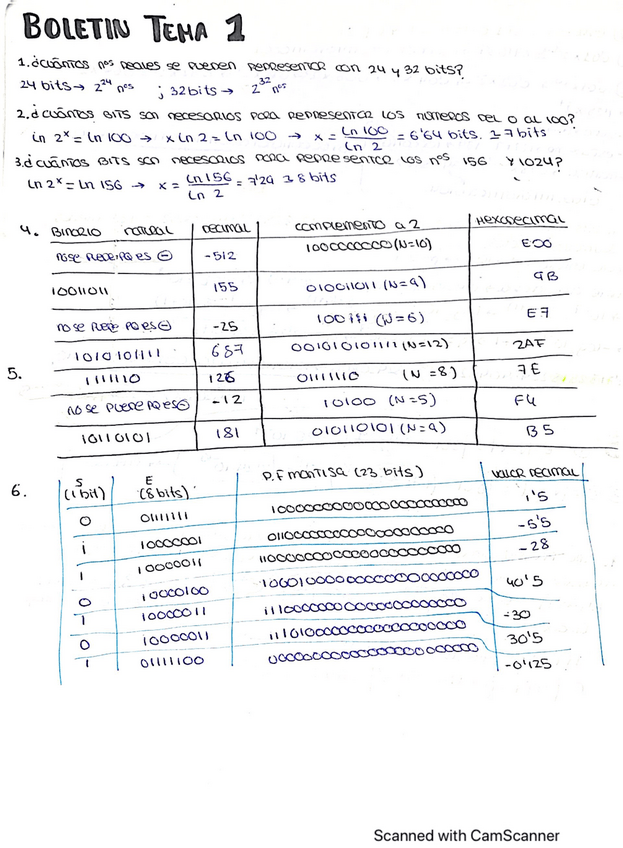 BOLETIN TEMA 1
1. ¿cuántos nºs reales se pueden representar con 24 y 32 bits?
24 bits → 2^24 nºs ; 32 bits → 2^32 nºs
2. ¿cuántos bits son necesarios para representar los números del 0 al 100?
ln 2^x = ln 100 → x ln 2 = ln 100 → x = ln 100 / ln 2 = 6'64 bits. ≃ 7 bits
3. ¿cuántos bits son necesarios para representar los nºs 156 y 1024?
ln 2^x = ln 156 → x = ln 156 / ln 2 = 7'29 ≃ 8 bits
4. BINARIO NATURAL DECIMAL COMPLEMENTO A 2 HEXADECIMAL
no se puede pq es ⊖ -512 1000000000 (N=10) E00
10011011 155 010011011 (N=9) 9B
no se puede pq es ⊖ -25 100111 (N=6) E7
1010101111 687 001010101111 (N=12) 2AF
5. 111110 126 01111110 (N=8) 7E
no se puede pq es ⊖ -12 10100 (N=5) F4
10110101 181 010110101 (N=9) B5
6. S (1 bit) E (8 bits) P.F mantisa (23 bits) VALOR DECIMAL
0 01111111 10000000000000000000000 1'5
1 10000001 01100000000000000000000 -5'5
1 10000011 11000000000000000000000 -28
0 10000100 40'5
1 10000011 11100000000000000000000 -30
0 10000011 11101000000000000000000 30'5
1 01111100 00000000000000000000000 -0'125
Scanned with CamScanner